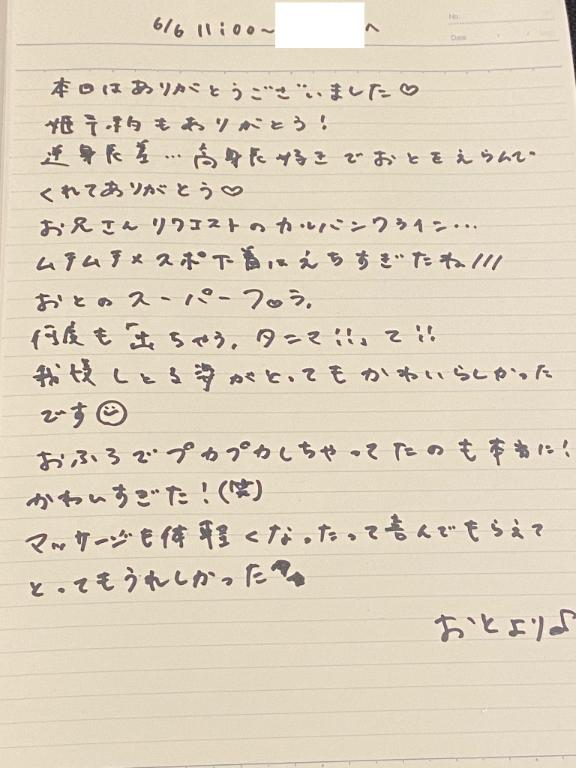 6/6 11:00~ へ
No.
Date
本日はありがとうございました♡
姫予約もありがとう!
逆身長差…高身長好きでおとをえらんで
くれてありがとう♡
お兄さんリクエストのカルバンクライン…
ムチムチ×スポ下着はえちすぎたね///
おとのスーパーフ〇ラ。
何度も「出ちゃう。タンマ!!」て!!
我慢しとる姿がとってもかわいらしかった
です☺
おふろでプカプカしちゃってたのも本当に!
かわいすぎた!(笑)
マッサージも体軽くなったって喜んでもらえて
とってもうれしかった
おとより♪